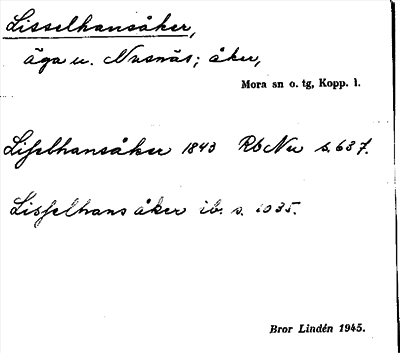 Lisselhansåker,
äga u. Nusnäs; åker,
Mora sn o. tg, Kopp. l.
Lisselhansåker 1843 Rb Nu s. 637.
Lisselhans åker ib. s. 1035.
Bror Lindén 1945.